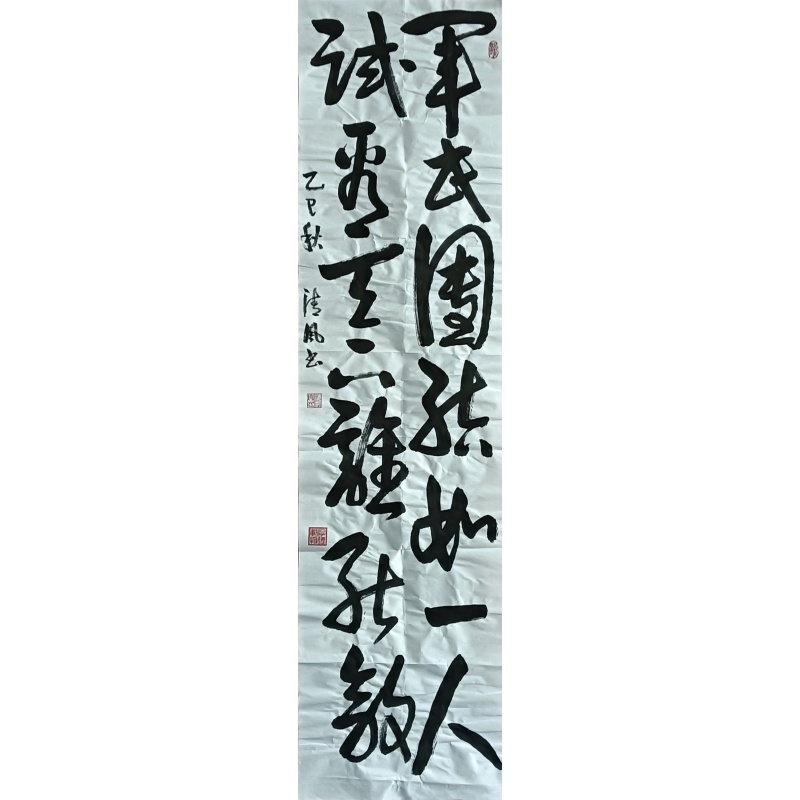 軍民團結如一人
試看天下誰能敵
乙巳秋 清風書